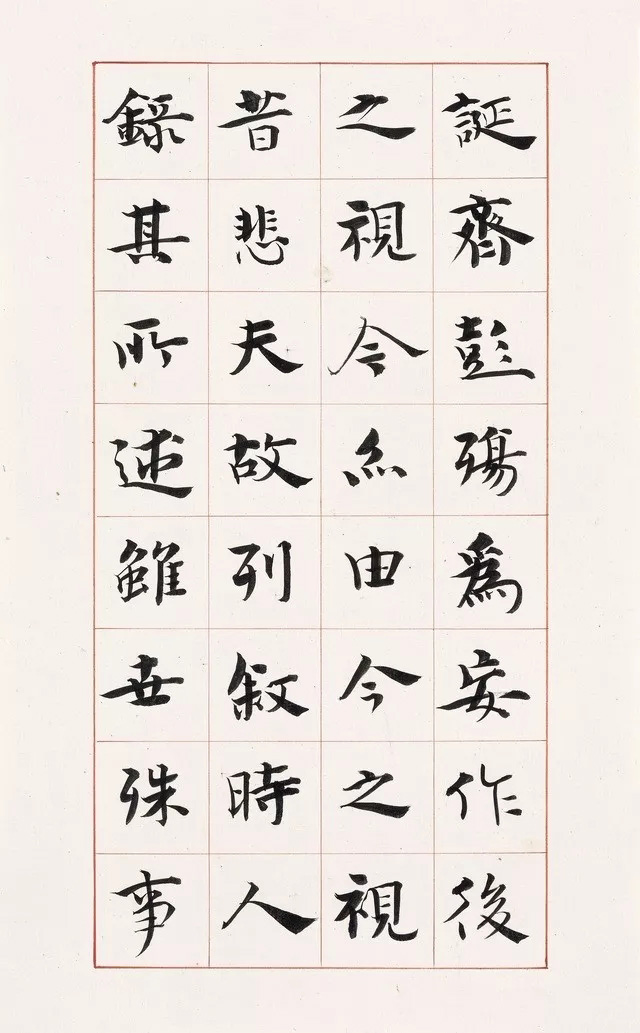 誕齊彭殤為妄作後
之視今亦由今之視
昔悲夫故列敘時人
錄其所述雖世殊事